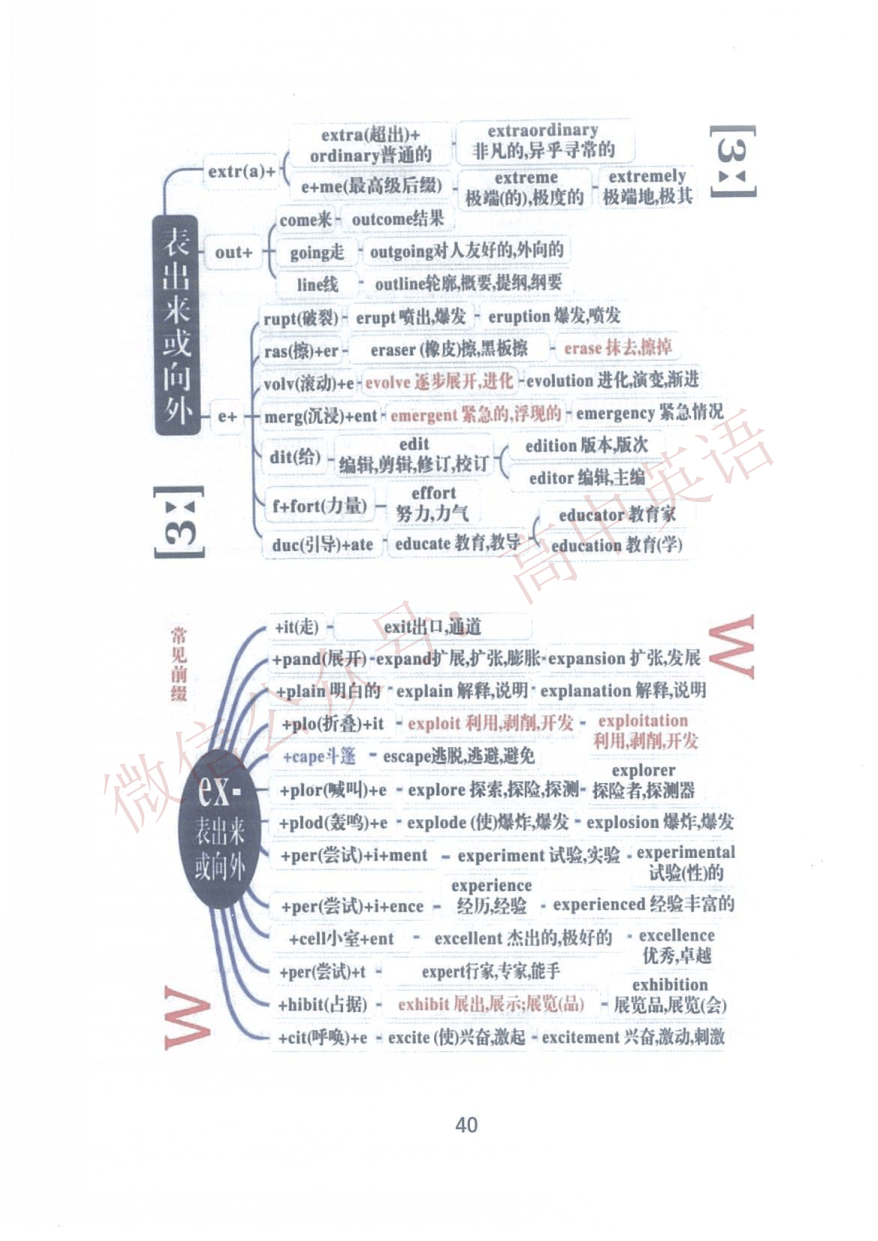 extra(超出)+ ordinary普通的 - extraordinary 非凡的,异乎寻常的
[3:]
extr(a)+
e+me(最高级后缀) - extreme 极端(的),极度的 - extremely 极端地,极其
表出来或向外
come来 - outcome结果
out+
going走 - outgoing对人友好的,外向的
line线 - outline轮廓,概要,提纲,纲要
rupt(破裂) - erupt 喷出,爆发 - eruption 爆发,喷发
ras(擦)+er - eraser (橡皮)擦,黑板擦 - erase 抹去,擦掉
volv(滚动)+e - evolve 逐步展开,进化 - evolution 进化,演变,渐进
e+
merg(沉浸)+ent - emergent 紧急的,浮现的 - emergency 紧急情况
dit(给) - edit 编辑,剪辑,修订,校订
edition 版本,版次
editor 编辑,主编
f+fort(力量) - effort 努力,力气
educator 教育家
duc(引导)+ate - educate 教育,教导
education 教育(学)
[3:]
常见前缀
W
+it(走) - exit出口,通道
+pand(展开) - expand扩展,扩张,膨胀 - expansion 扩张,发展
+plain 明白的 - explain 解释,说明 - explanation 解释,说明
+plo(折叠)+it - exploit 利用,剥削,开发 - exploitation 利用,剥削,开发
+cape斗篷 - escape逃脱,逃避,避免
ex-
表出来
或向外
+plor(喊叫)+e - explore 探索,探险,探测 - explorer 探险者,探测器
+plod(轰鸣)+e - explode (使)爆炸,爆发 - explosion 爆炸,爆发
+per(尝试)+i+ment - experiment 试验,实验 - experimental 试验(性)的
+per(尝试)+i+ence - experience 经历,经验 - experienced 经验丰富的
+cell小室+ent - excellent 杰出的,极好的 - excellence 优秀,卓越
+per(尝试)+t - expert行家,专家,能手
+hibit(占据) - exhibit 展出,展示;展览(品) - exhibition 展览品,展览(会)
+cit(呼唤)+e - excite (使)兴奋,激起 - excitement 兴奋,激动,刺激
W
微信公众号：高中英语
40